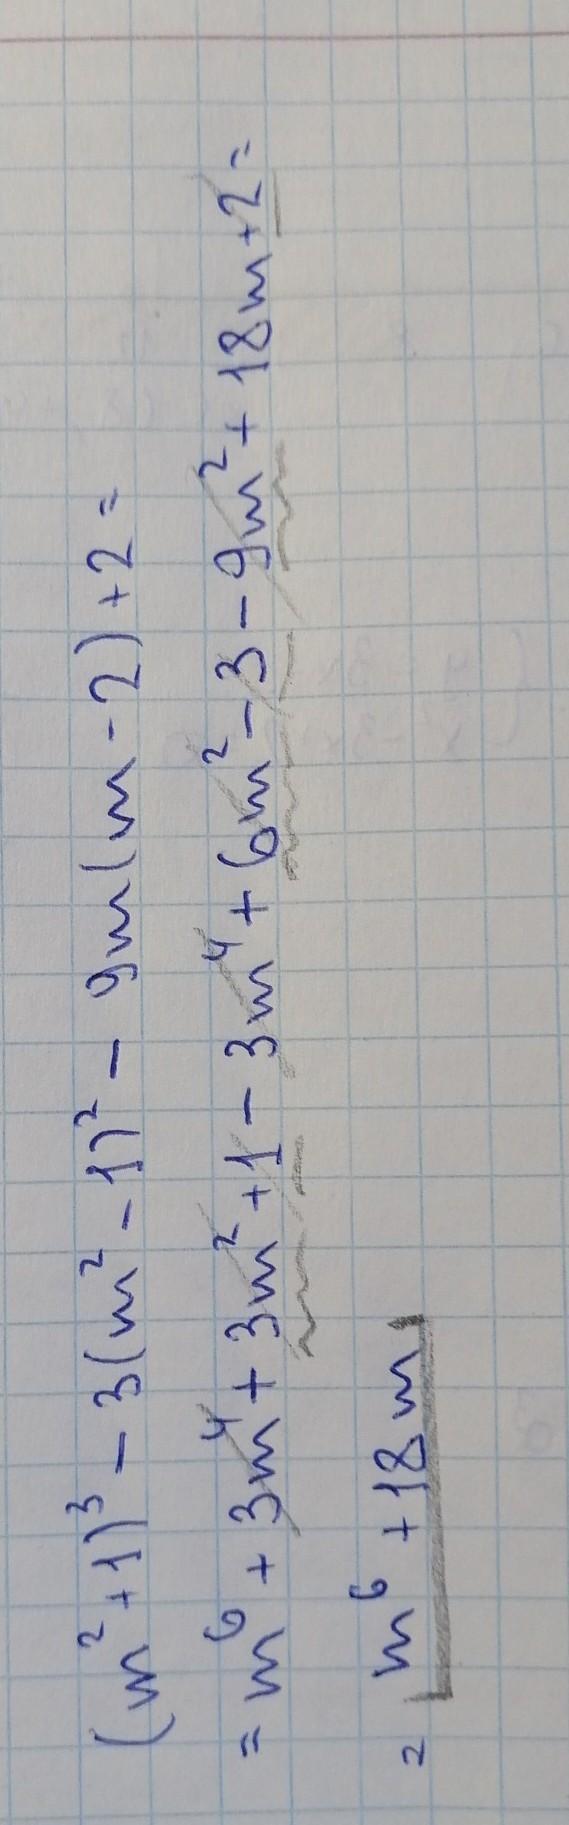 (m²+1)³ - 3(m² - 1)² - 9m(m - 2) + 2 =
= m⁶ + 3m⁴ + 3m² + 1 - 3m⁴ + 6m² - 3 - 9m² + 18m + 2 =
= m⁶ + 18m